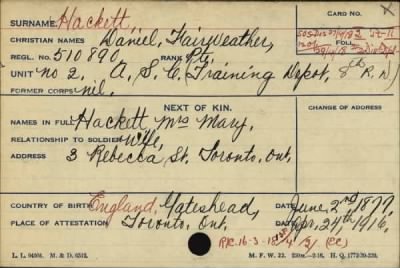 SURNAME Hackett,
CARD NO.
CHRISTIAN NAMES Daniel, Fairweather,
FOLL.
REGL. NO. 510890, RANK Pte,
UNIT No 2, A. S. C. (Training Depot, 8th R. D)
FORMER CORPS nil.
NEXT OF KIN.
CHANGE OF ADDRESS
NAMES IN FULL Hackett, Mrs Mary,
RELATIONSHIP TO SOLDIER Wife,
ADDRESS 3 Rebecca St. Toronto, Ont.
COUNTRY OF BIRTH England, Gateshead, DATE June, 2nd 1877.
PLACE OF ATTESTATION Toronto, Ont. DATE Apr. 24th, 1916.
R/C. 16-3-18
(CC)
L. L. 94604. M. & D. 6512. M. F. W. 22.